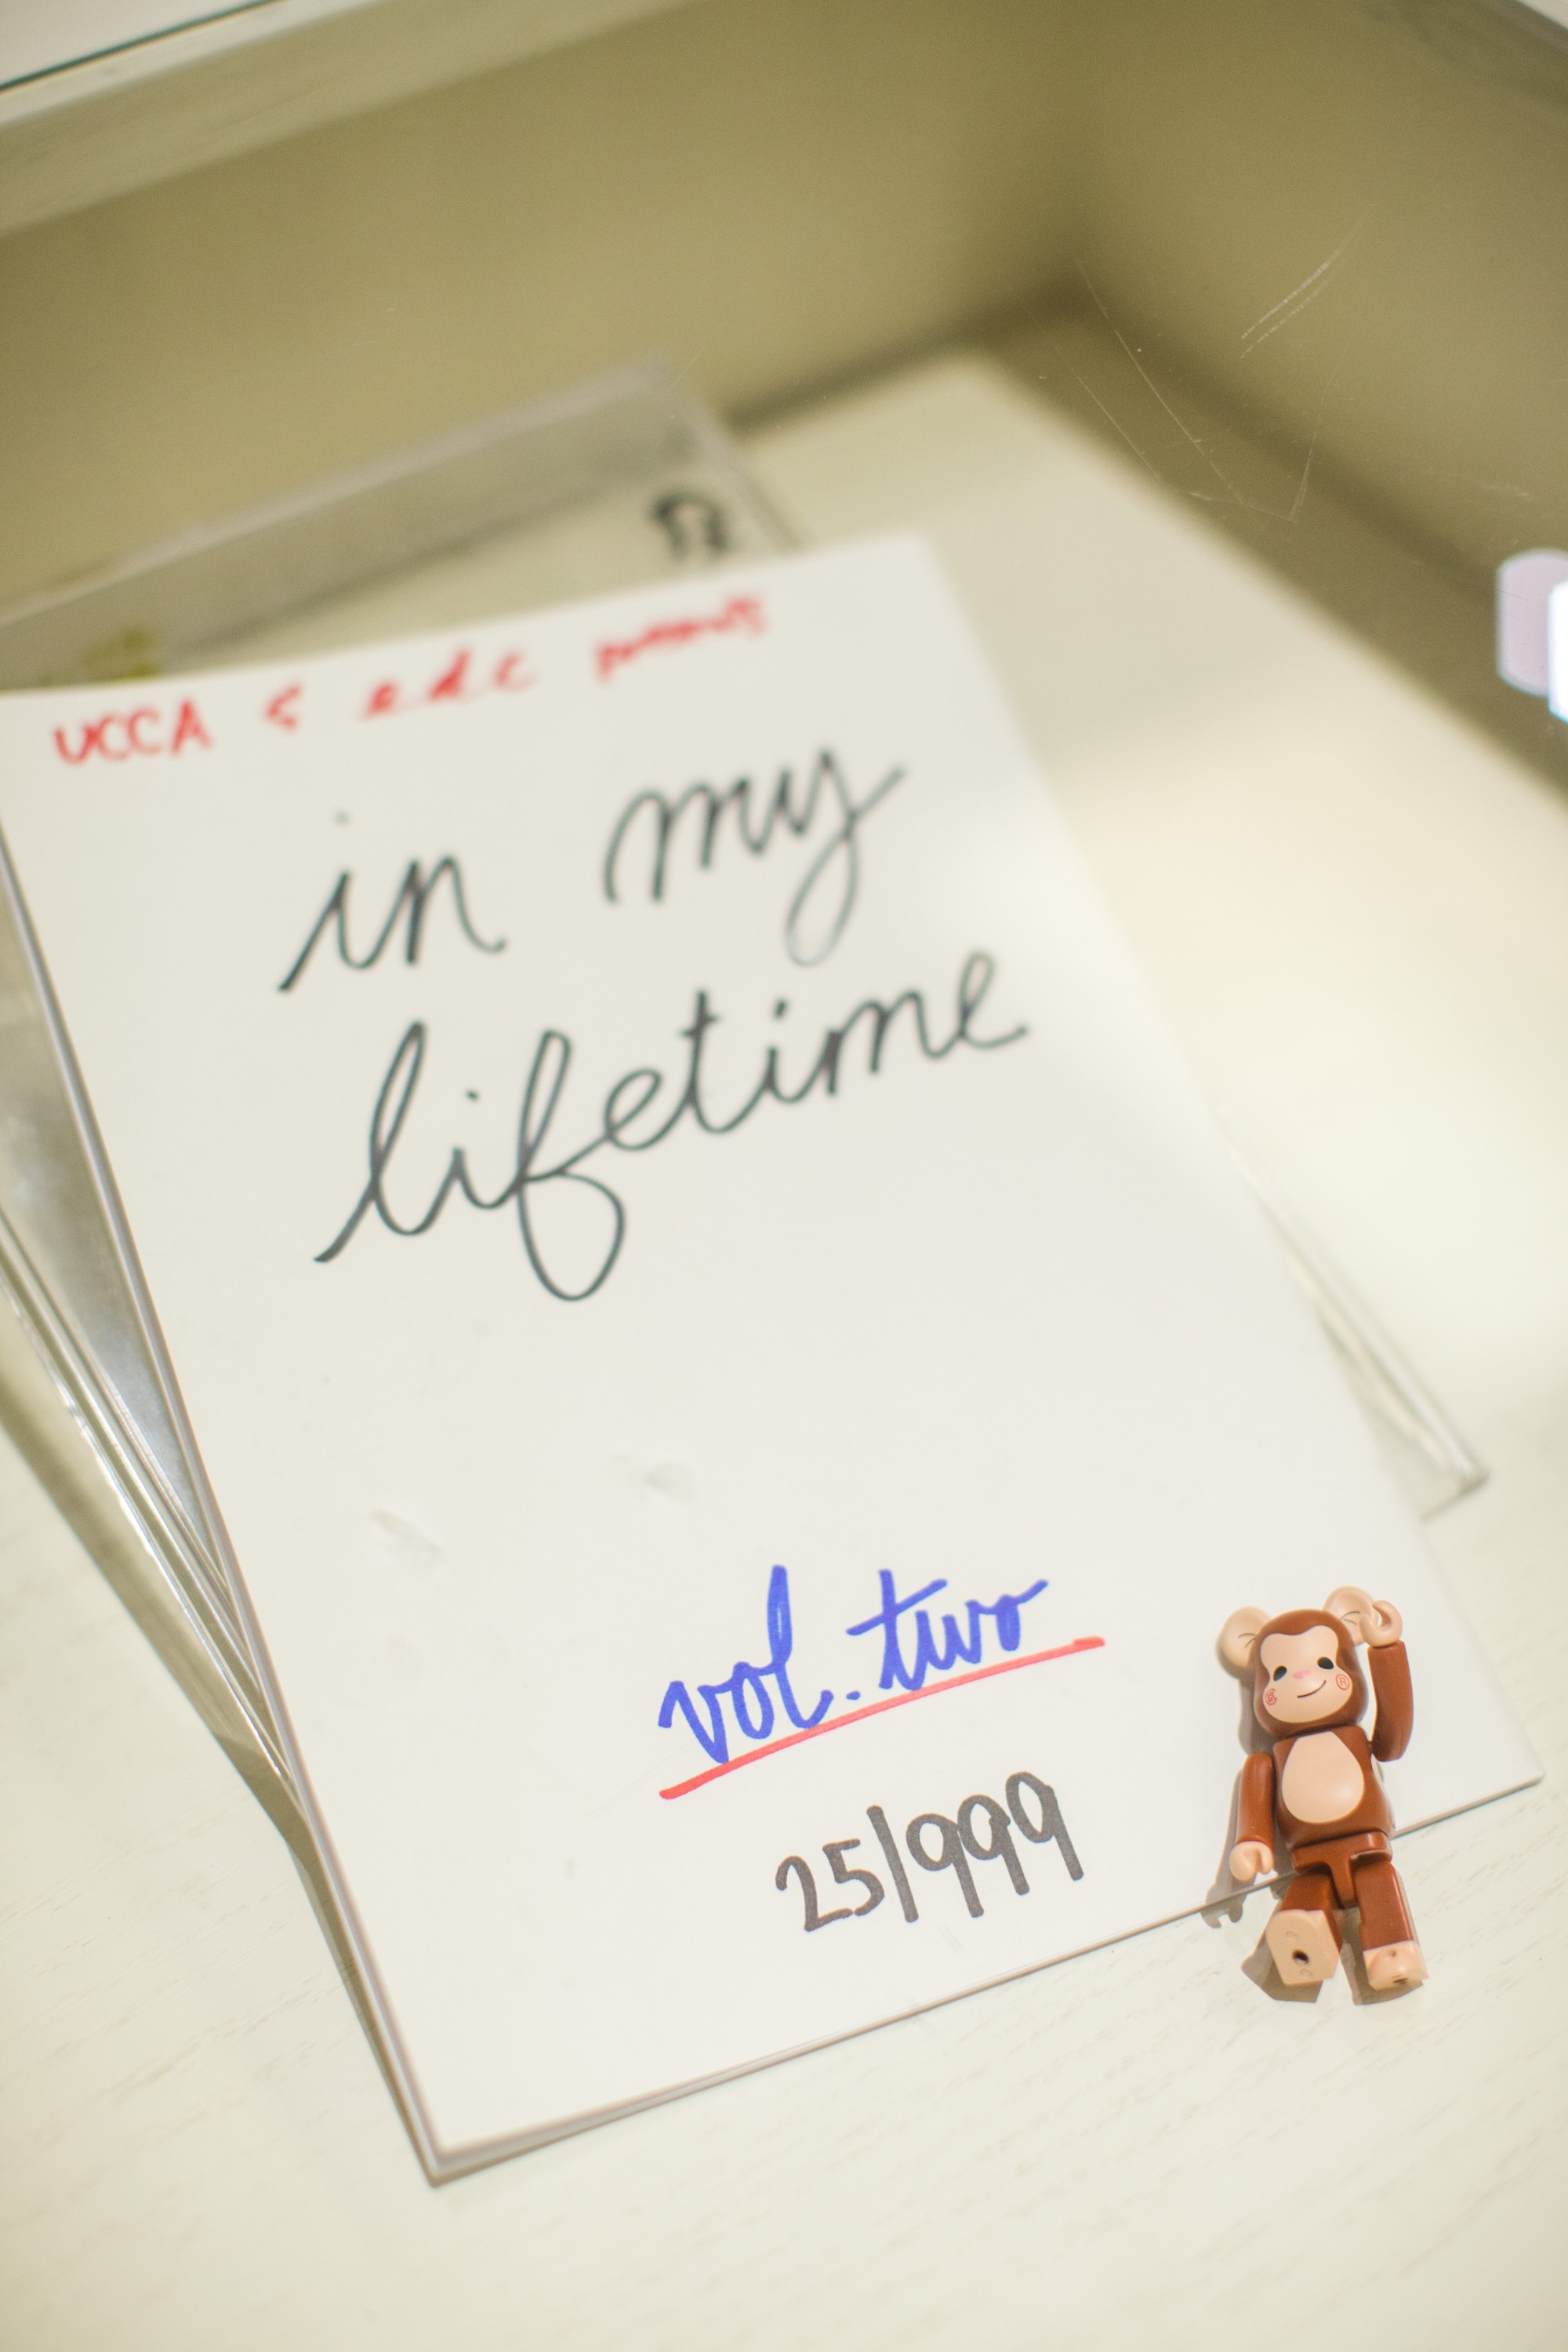 UCCA & edc presents
in my
lifetime
vol. two
25/999